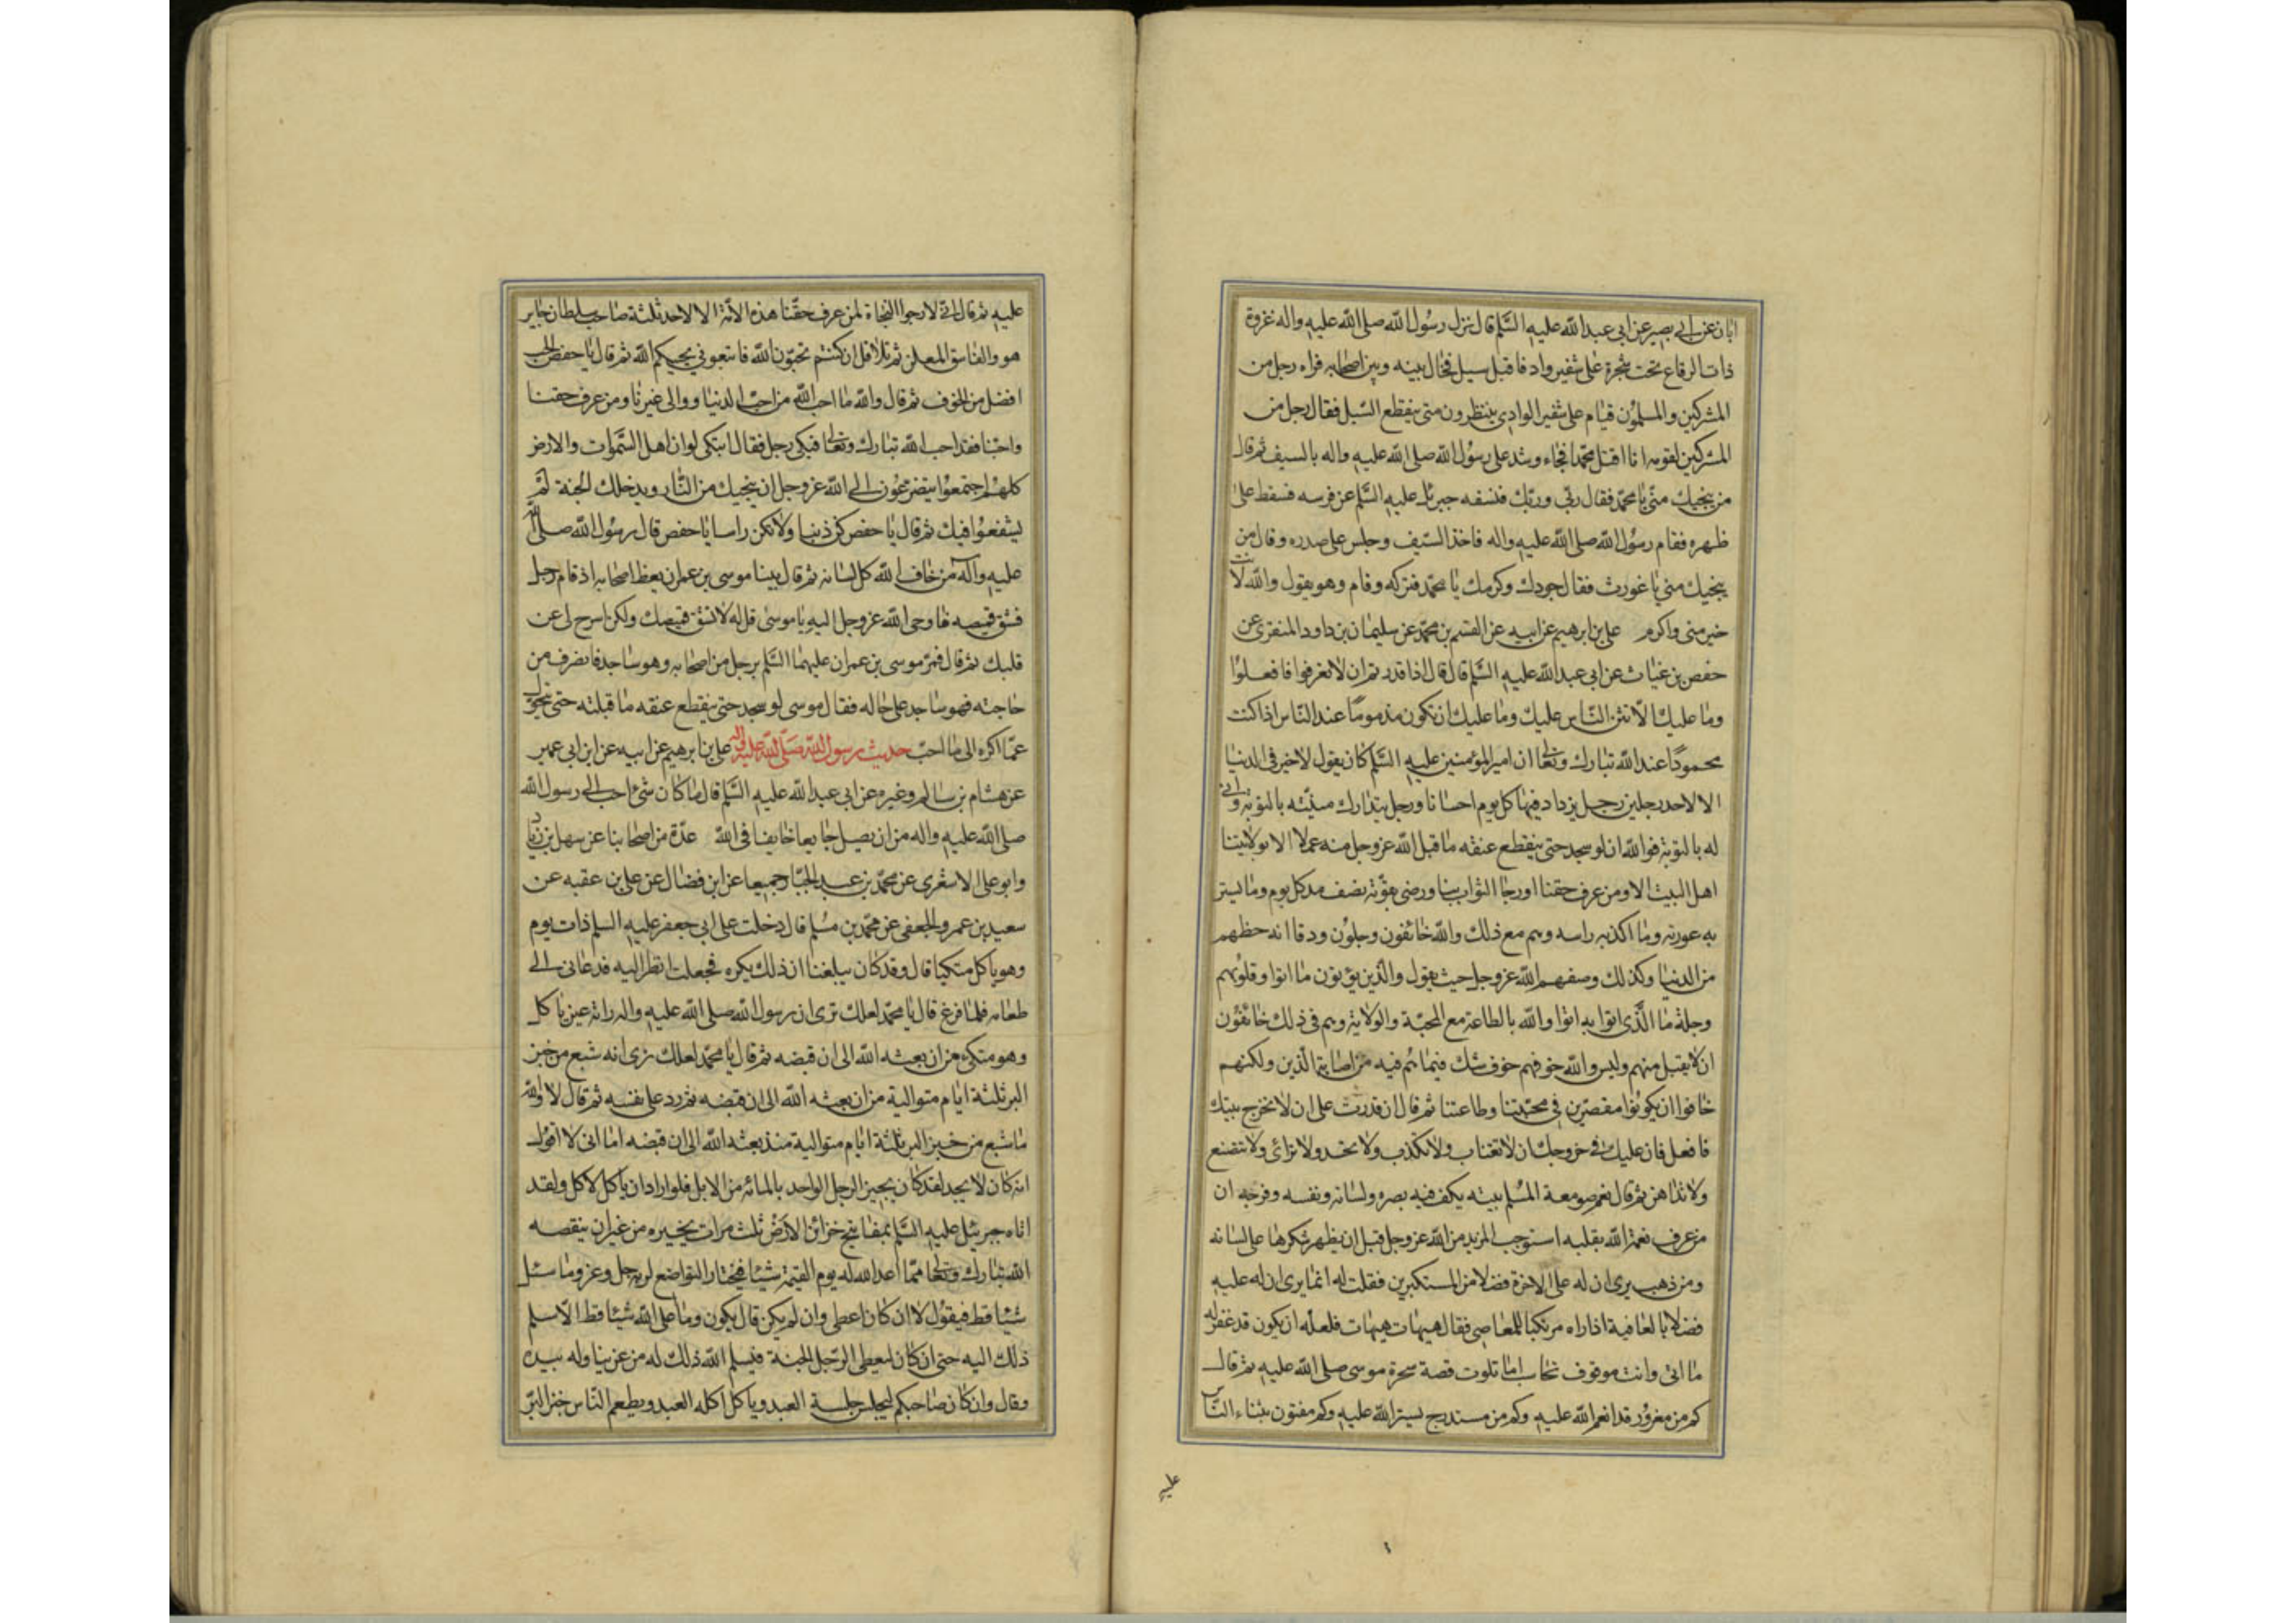 ابان عن ابي بصير عن ابي عبد الله عليه السلم قال نزل رسول الله صلى الله عليه واله غزوة
ذات الرقاع تحت شجرة على شفير واد فاقبل سيل فحال بينه وبين اصحابه فراه رجل من
المشركين والمسلمون قيام على شفير الوادي ينتظرون متى ينقطع السيل فقال رجل من
المشركين لقومه انا اقتل محمدا فجاء وشد على رسول الله صلى الله عليه واله بالسيف ثم قال
من ينجيك مني يا محمد فقال ربي وربك فنسفه جبرئل عليه السلم عن فرسه فسقط على
ظهره فقام رسول الله صلى الله عليه واله فاخذ السيف وجلس على صدره وقال من
ينجيك مني يا غورث فقال جودك وكرمك يا محمد فتركه وقام وهو يقول والله لانت
خير مني واكرم علي بن ابرهيم عن ابيه عن القسم بن محمد عن سليمان بن داود المنقري عن
حفص بن غياث عن ابي عبد الله عليه السلم قال قال اذا قدرتم ان لا تعرفوا فافعلوا
وما عليك الا يثن الناس عليك وما عليك ان تكون مذموما عند الناس اذا كنت
محمودا عند الله تبارك وتعالى ان امير المؤمنين عليه السلم كان يقول لا خير في الدنيا
الا لاحد رجلين رجل يزداد فيها كل يوم احسانا ورجل يتدارك منيته بالتوبة وانى
له بالتوبة فوالله ان لو سجد حتى ينقطع عنقه ما قبل الله عز وجل منه عملا الا بولايتنا
اهل البيت الا ومن عرف حقنا اورجا الثواب بنا ورضي بقوته نصف مد كل يوم وما يستر
به عورته وما اكن به راسه وهم مع ذلك والله خائفون وجلون ودوا انه حظهم
من الدنيا وكذلك وصفهم الله عز وجل حيث يقول والذين يؤتون ما اتوا وقلوبهم
وجلة ما الذي اتوا به اتوا والله بالطاعة مع المحبة والولاية وهم في ذلك خائفون
ان لا يقبل منهم وليس والله خوفهم خوف شك فيما هم فيه من اصابة الدين ولكنهم
خافوا ان يكونوا مقصرين في محبتنا وطاعتنا ثم قال ان قدرت على ان لا تخرج بيتك
فافعل فان عليك في خروجك ان لا تغتاب ولا تكذب ولا تحسد ولا ترائي ولا تتصنع
ولا تداهن ثم قال نعم صومعة المسلم بيته يكف فيه بصره ولسانه ونفسه وفرجه ان
من عرف نعمة الله بقلبه استوجب المزيد من الله عز وجل قبل ان يظهر شكرها على لسانه
ومن ذهب يرى ان له على الاخرة فضلا من المستكبرين فقلت له انما يرى ان له عليه
فضلا بالعافية اذا راه مرتكبا للمعاصي فقال هيهات هيهات فلعله ان يكون قد غفر له
ما اتى وانت موقوف تحاسب اما تلوت قصة سحرة موسى صلى الله عليه ثم قال
كم من مغرور قد انعم الله عليه وكم من مستدرج يستر الله عليه وكم مفتون بثناء الناس
عليه
عليه ثم قال اني لارجوا النجاة لمن عرف حقنا هذه الامة الا لاحد ثلثة صاحب سلطان جاير
هو والفاسق المعلن ثم تلا قل ان كنتم تحبون الله فاتبعوني يحببكم الله ثم قال يا حفص الحب
افضل من الخوف ثم قال والله ما احب الله من احب الدنيا ووالى غيرنا ومن عرف حقنا
واحبنا فقد احب الله تبارك وتعالى فبكى رجل فقال اتبكي لو ان اهل السموات والارض
كلهم اجتمعوا يتضرعون الى الله عز وجل ان ينجيك من النار ويدخلك الجنة لم
يشفعوا فيك ثم قال يا حفص كن ذنبا ولا تكن راسا يا حفص قال رسول الله صلى الله
عليه وآله من خاف الله كل لسانه ثم قال بينا موسى بن عمران يعظ اصحابه اذ قام رجل
فشق قميصه فاوحى الله عز وجل اليه يا موسى قل له لا تشق قميصك ولكن اشرح لي عن
قلبك ثم قال فمر موسى بن عمران عليهما السلم برجل من اصحابه وهو ساجد فانصرف من
حاجته فهو ساجد على حاله فقال موسى لو سجد حتى ينقطع عنقه ما قبلته حتى يتحول
عما اكره الى ما احب حديث رسول الله صلى الله عليه واله علي بن ابرهيم عن ابيه عن ابن ابي عمير
عن هشام بن سالم وغيره عن ابي عبد الله عليه السلم قال ما كان شئ احب الى رسول الله
صلى الله عليه واله من ان يصل جايعا خايفا في الله عدة من اصحابنا عن سهل بن زياد
وابو علي الاشعري عن محمد بن عبد الجبار جميعا عن ابن فضال عن علي بن عقبه عن
سعيد بن عمرو الجعفي عن محمد بن مسلم قال دخلت على ابي جعفر عليه السلم ذات يوم
وهو ياكل متكيا قال وقد كان يبلغنا ان ذلك يكره فجعلت انظر اليه فدعاني الى
طعامه فلما فرغ قال يا محمد لعلك ترى ان رسول الله صلى الله عليه واله راته عين ياكل
وهو متكئ من ان بعثه الله الى ان قبضه ثم قال يا محمد لعلك ترى انه شبع من خبز
البر ثلثة ايام متوالية من ان بعثه الله الى ان قبضه ثم رد على نفسه ثم قال لا والله
ما شبع من خبز البر ثلثة ايام متوالية منذ بعثه الله الى ان قبضه اما اني لا اقول
انه كان لا يجد لقد كان يجيز الرجل الواحد بالمائة من الابل فلو اراد ان ياكل لاكل ولقد
اتاه جبرئيل عليه السلم بمفاتيح خزائن الارض ثلث مرات يخيره من غير ان ينقصه
الله تبارك وتعالى مما اعد الله له يوم القيمة شيئا فيختار التواضع لربه جل وعز وما سئل
شيئا قط فيقول لا ان كان اعطى وان لم يكن قال يكون وما اعطى على الله شيئا قط الا سلم
ذلك اليه حتى ان كان ليعطي الرجل الجنة فيسلم الله ذلك له من عزيناوله بيده
وقال وان كان صاحبكم ليجلس جلسة العبد وياكل اكله العبد ويطعم الناس خبز البر